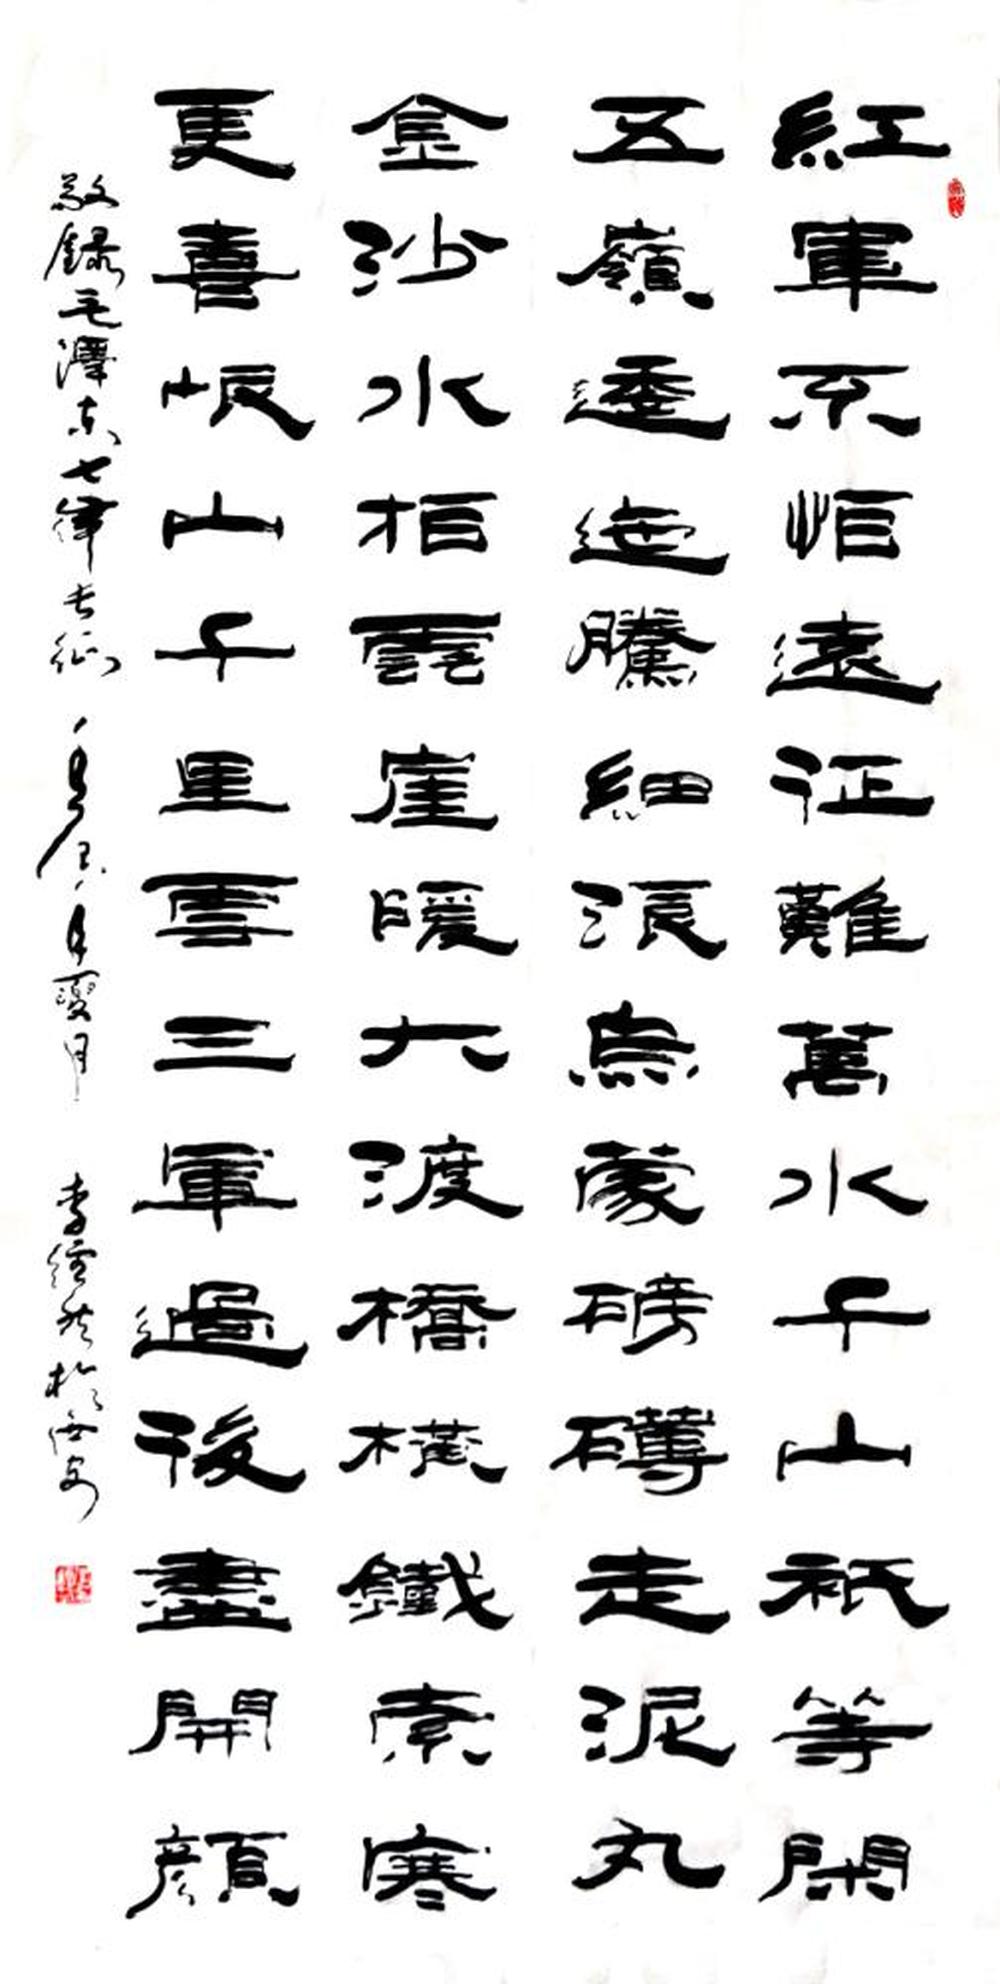 紅軍不怕遠征難萬水千山祇等閑
五嶺逶迤騰細浪烏蒙磅礴走泥丸
金沙水拍雲崖暖大渡橋橫鐵索寒
更喜岷山千里雪三軍過後盡開顏
敬錄毛澤東七律長征 夏月 李 於西安